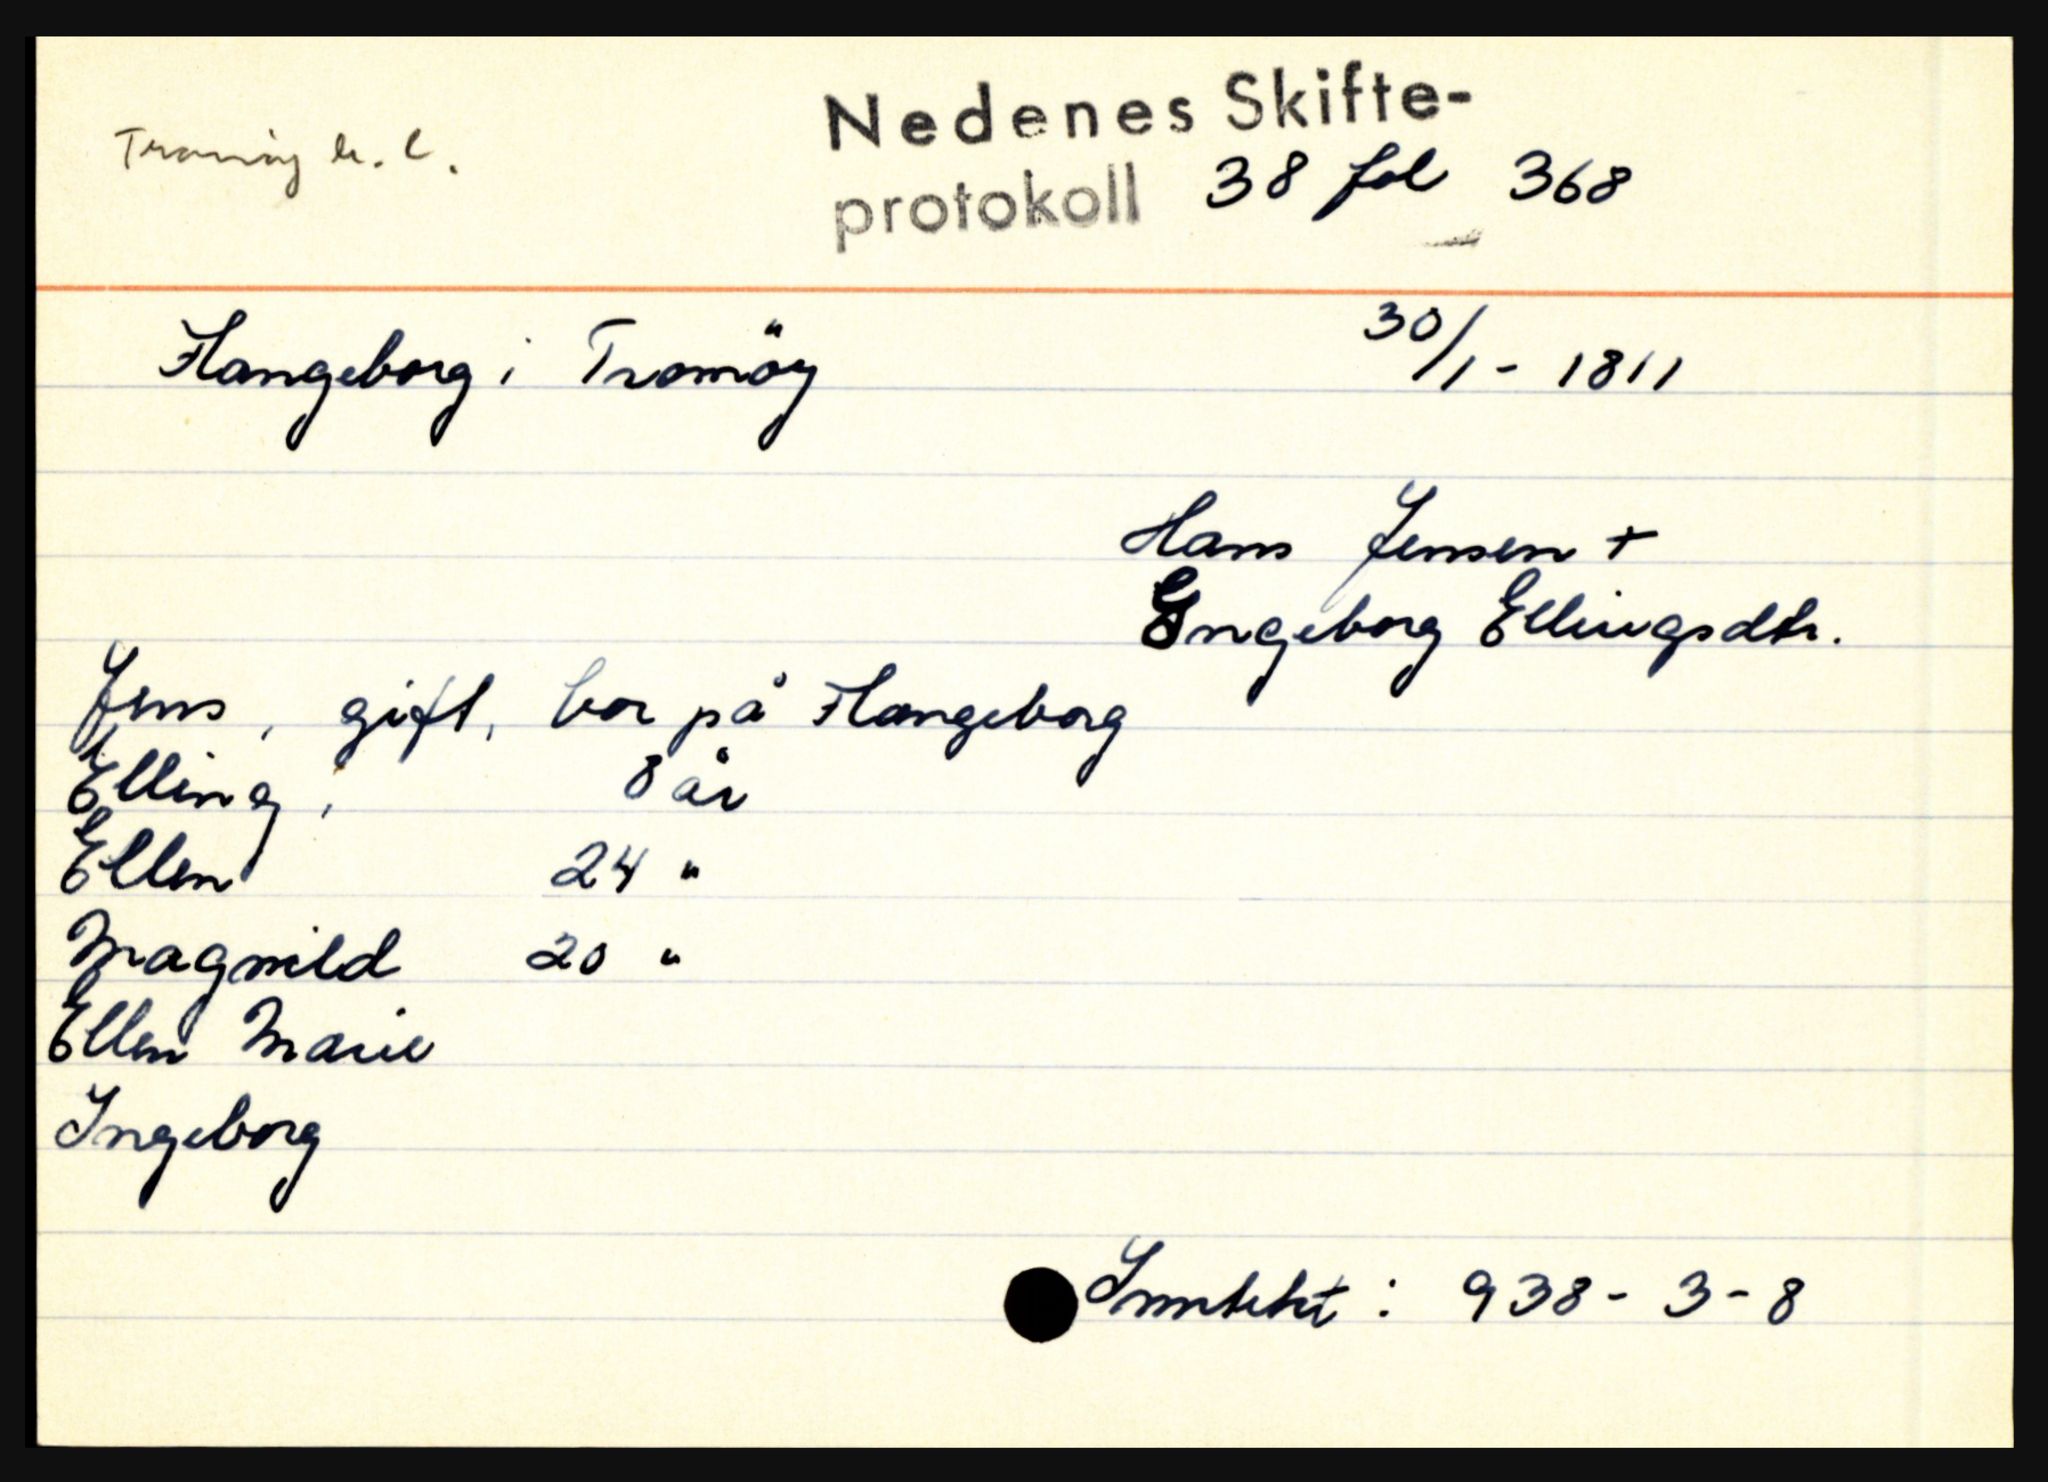 Tromöy h. l.
Nedenes Skifte-
protokoll 38 fol 368
Flangeborg i Tromöy 30/1 - 1811
Hans Jensen +
Ingeborg Ellingsdtr.
Jens, gift, bor på Flangeborg
Elling, 8 år
Ellen 24 "
Magnild 20 "
Ellen Marie
Ingeborg
Inntekt : 938 - 3 - 8